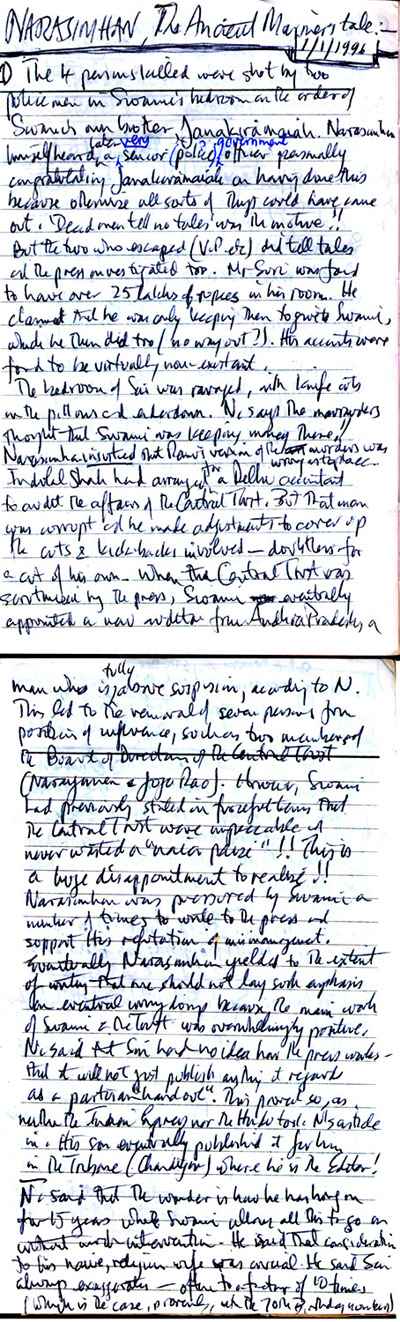 NARASIMHAN, The Ancient Mariner's tale:-
1/1/1996
1) The 4 persons killed were shot by two
policemen in Swami's bedroom on the order of
Swami's own brother, Janakiramaiah. Narasimhan
later very government
himself heard a senior (police) officer personally
congratulating Janakiramaiah on having done this
because otherwise all sorts of things could have come
out. 'Dead men tell no tales' was the motive!!
But the two who escaped (V.P. etc) did tell tales
and the press investigated too. Mr Suri was found
to have over 25 lakhs of rupees in his room. He
claimed that he was only keeping them to give to Swami,
which he then did too (no way out?). His accounts were
found to be virtually non-existent.
The bedroom of Sai was ravaged, with knife cuts
in the pillows and eiderdown. N. says the marauders
thought that Swami was keeping money there!!
Narasimhan insisted that version of the murders was
wrong
Indulal Shah had arranged for a Delhi accountant
to audit the affairs of the Central Trust. But that man
was corrupt and he made adjustments to cover up
the cuts & kick-backs involved — doubtless for
a cut of his own. When the Central Trust was
scrutinised by the press, Swami eventually
appointed a new auditor from Andhra Pradesh, a
man who is fully above suspicion, according to N.
This led to the removal of seven persons from
positions of influence, such as two members of
the Board of Directors of the Central Trust
(Narayanan & Joga Rao). However, Swami
had previously stated in forceful terms that
the Central Trust were impeccable and
never wasted a "naia paise"!! This is
a huge disappointment to realise!!
Narasimhan was pressured by Swami a
number of times to write to the press and
support His reputation of mismanagement.
Eventually Narasimhan yielded to the extent
of writing that one should not lay such emphasis
on eventual wrong doings because the main work
of Swami & the Trust was overwhelmingly positive.
N. said that Sai had no idea how the press works -
that it will not just publish anything it regards
as a partisan "hand out". This proved so, as
neither the Indian Express nor the Hindu took N's article
in. His son eventually published it for him
in the Tribune (Chandigarh) where he is the Editor!
N. said that the wonder is how he has hung on
for 15 years while Swami allows all this to go on
without intervention. He said that consideration
to his naive, religious wife was crucial. He said Sai
always exaggerates — often to a factor of 10 times
(which is the case, provenly, with the 70th b.thday numbers)